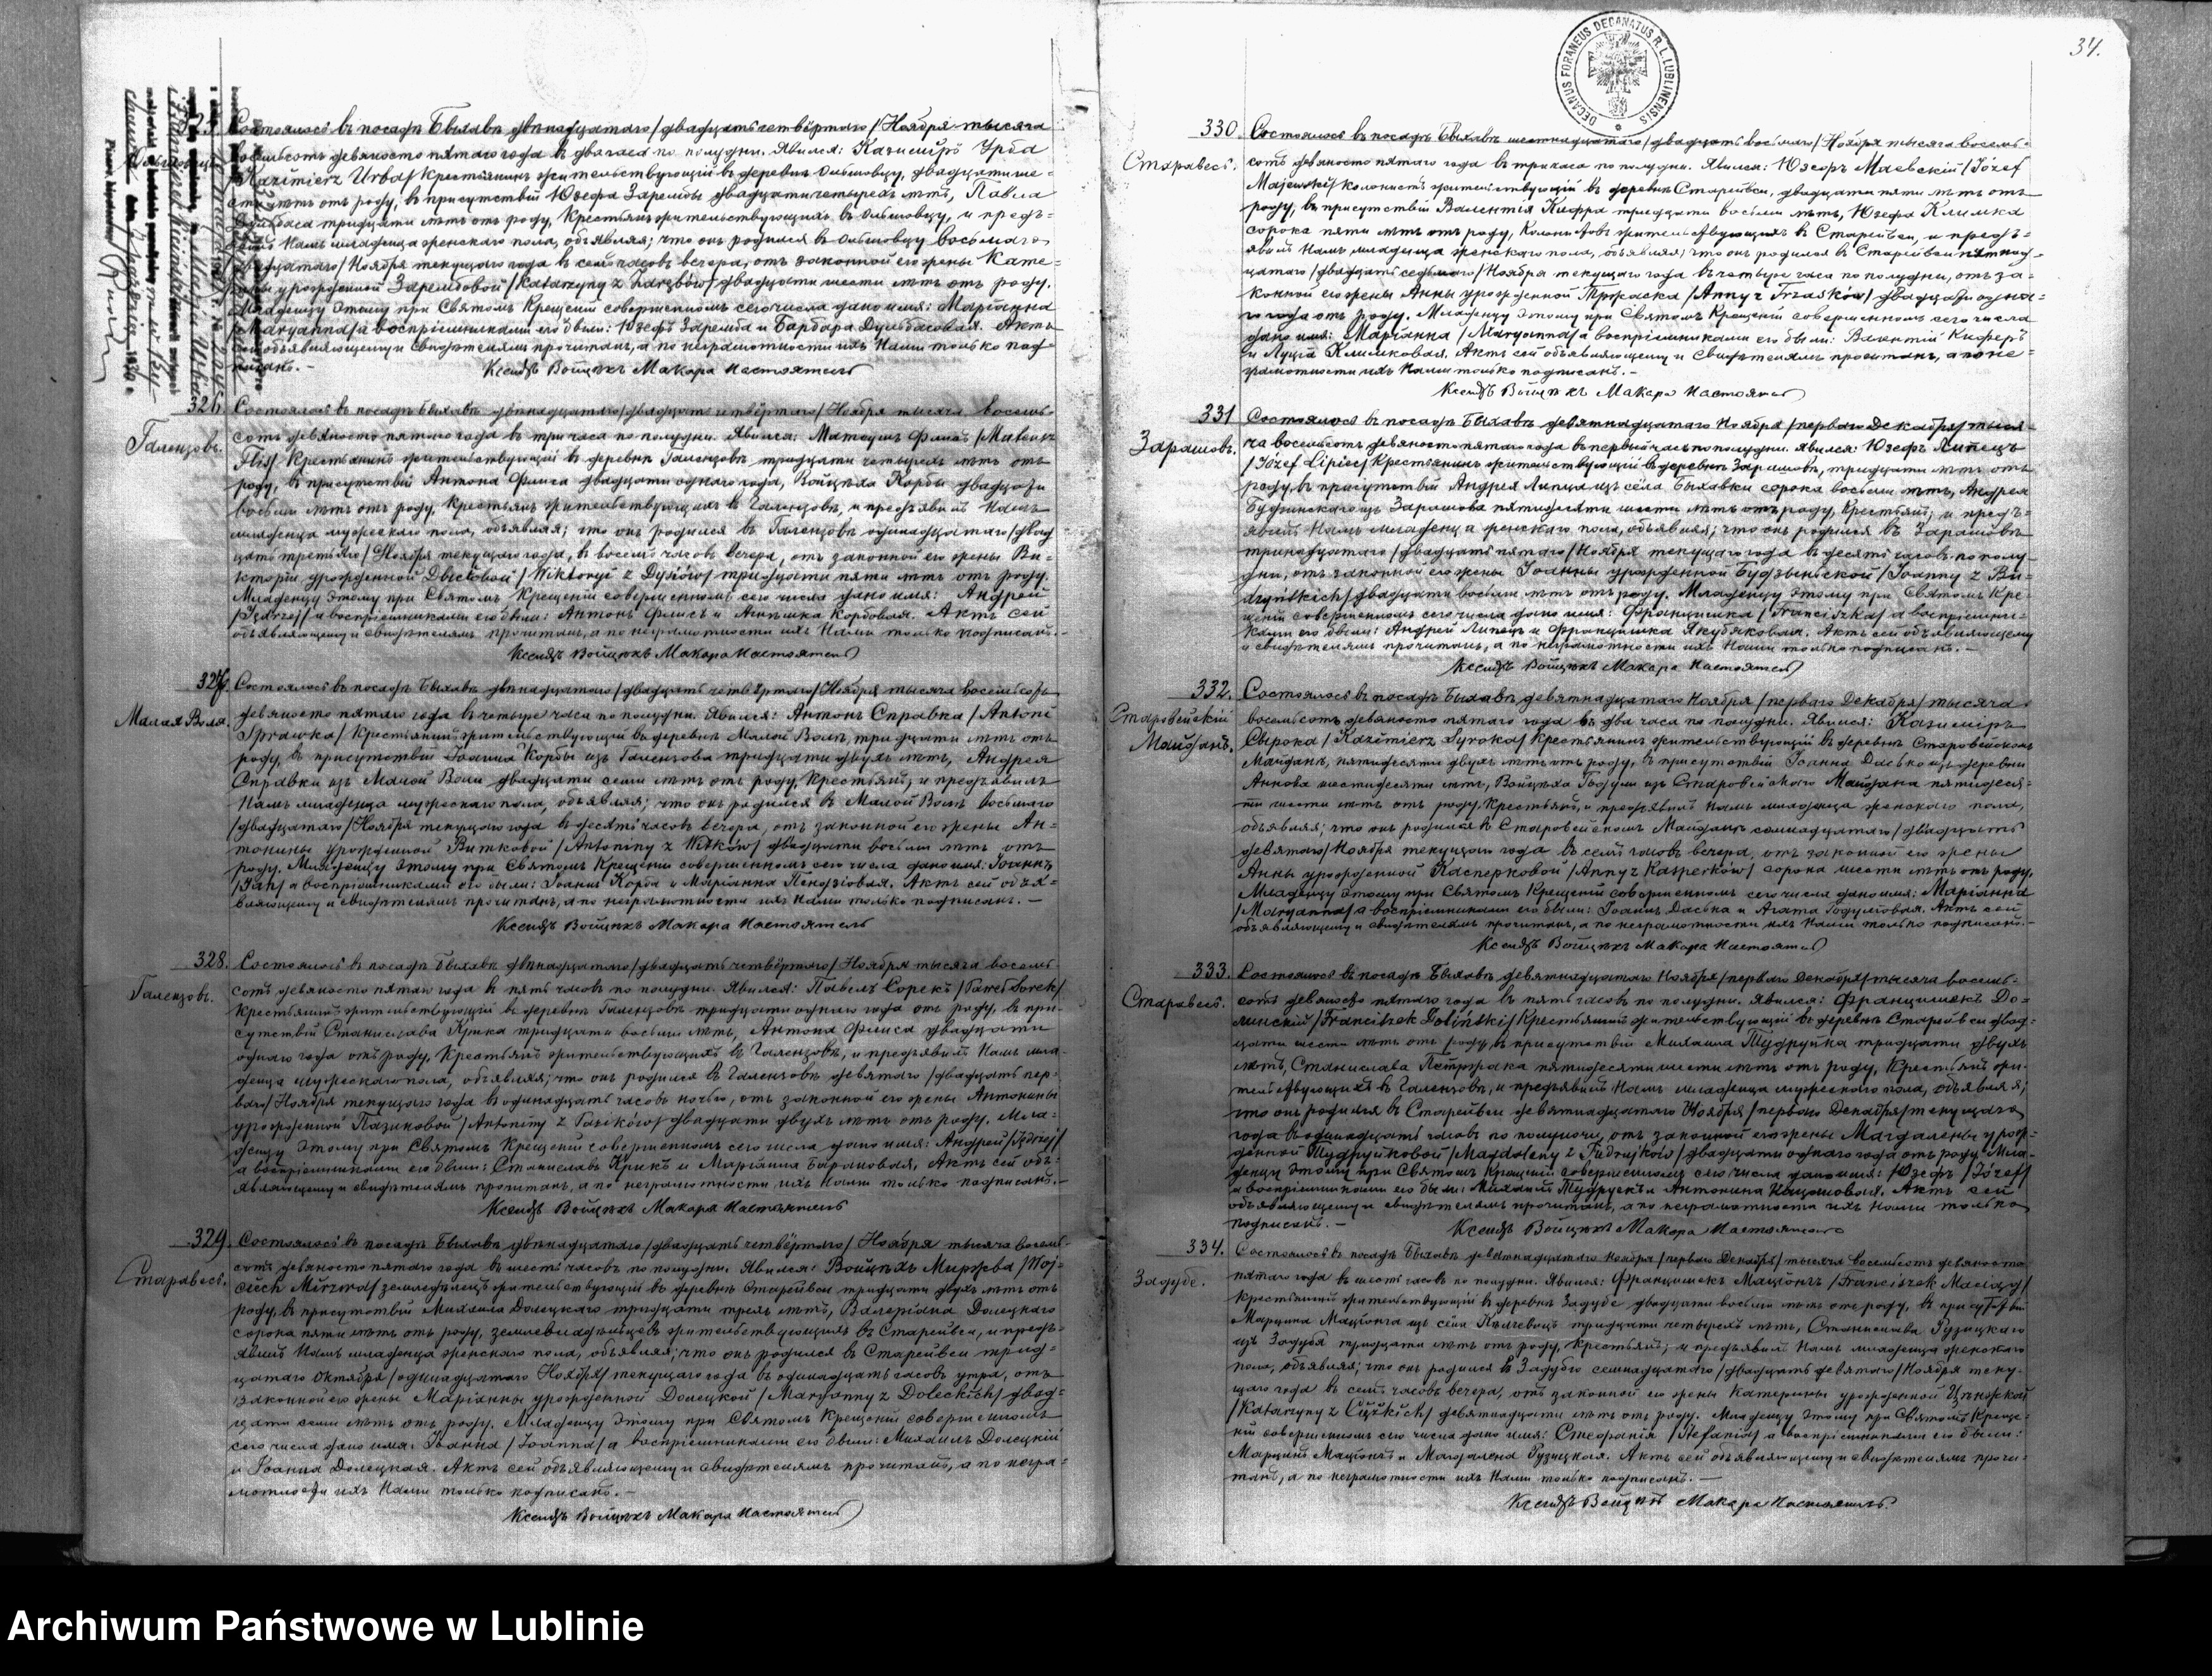 34.
DECANUS FORANEUS DECANATUS R. L. LUBLINENSIS
Состоялось въ посадѣ Быхавѣ двѣнадцатаго /двадцать четвёртаго/ Ноября тысяча
восемьсотъ девяносто пятаго года въ два часа по полудни. Явился: Казимиръ Урба
/Kazimierz Urba/ крестьянинъ жительствующій въ деревнѣ
отъ роду, въ присутствіи Юзефа Зарембы двадцати четырехъ лѣтъ, Павла
тридцати лѣтъ отъ роду, крестьянъ жительствующихъ въ
Намъ младенца женскаго пола, объявляя; что онъ родился въ восьмаго
/двадцатаго/ Ноября текущаго года въ семь часовъ вечера, отъ законной его жены Кате-
урожденной Зарембовой /Katarzyny z Zarębów/ двадцати шести лѣтъ отъ роду.
Младенцу этому при Святомъ Крещеніи совершенномъ сего числа дано имя: Маріанна
/Maryanna/ а воспріемниками его были: Юзефъ Заремба и Барбара Актъ
сей объявляющему и свидѣтелямъ прочитанъ, а по неграмотности ихъ Нами только под-
писанъ. –
Ксендзъ Войцѣхъ Макара Настоятель
326.
Галенцовъ.
Состоялось въ посадѣ Быхавѣ двѣнадцатаго /двадцать четвёртаго/ Ноября тысяча восемь-
сотъ девяносто пятаго года въ три часа по полудни. Явился: Матеушъ Флисъ /Mateusz
Flis/ крестьянинъ жительствующій въ деревнѣ Галенцовѣ тридцати четырехъ лѣтъ отъ
роду, въ присутствіи Антона Флиса двадцати одного года, Войцѣха Корбы двадцати
восьми лѣтъ отъ роду, крестьянъ жительствующихъ въ Галенцовѣ, и предъявилъ Намъ
младенца мужескаго пола, объявляя; что онъ родился въ Галенцовѣ одинадцатаго /двад-
цать третьяго/ Ноября текущаго года, въ восемь часовъ вечера, отъ законной его жены Ви-
кторіи урожденной /Wiktoryi z Dysiów/ тридцати пяти лѣтъ отъ роду.
Младенцу этому при Святомъ Крещеніи совершенномъ сего числа дано имя: Андрей
/Jędrzej/ а воспріемниками его были: Антонъ Флисъ и Агнешка Корбовая. Актъ сей
объявляющему и свидѣтелямъ прочитанъ, а по неграмотности ихъ Нами только подписанъ. –
Ксендзъ Войцѣхъ Макара Настоятель
327.
Малая Воля.
Состоялось въ посадѣ Быхавѣ двѣнадцатаго /двадцать четвёртаго/ Ноября тысяча восемьсотъ
девяносто пятаго года въ четыре часа по полудни. Явился: Антонъ Справка /Antoni
Sprawka/ крестьянинъ жительствующій въ деревнѣ Малой Волѣ, тридцати лѣтъ отъ
роду, въ присутствіи Іоанна Корбы изъ Галенцова тридцати двухъ лѣтъ, Андрея
Справки изъ Малой Воли двадцати семи лѣтъ отъ роду, крестьянъ, и предъявилъ
Намъ младенца мужескаго пола, объявляя; что онъ родился въ Малой Волѣ восьмаго
/двадцатаго/ Ноября текущаго года въ десять часовъ вечера, отъ законной его жены Ан-
тонины урожденной Витковой /Antoniny z Witków/ двадцати восьми лѣтъ отъ
роду. Младенцу этому при Святомъ Крещеніи совершенномъ сего числа дано имя: Іоаннъ
/Jan/ а воспріемниками его были: Іоаннъ Корба и Маріанна Актъ сей объя-
вляющему и свидѣтелямъ прочитанъ, а по неграмотности ихъ Нами только подписанъ. –
Ксендзъ Войцѣхъ Макара Настоятель
328.
Галенцовъ.
Состоялось въ посадѣ Быхавѣ двѣнадцатаго /двадцать четвёртаго/ Ноября тысяча восемь-
сотъ девяносто пятаго года въ пять часовъ по полудни. Явился: Павелъ Сорекъ /Paweł Sorek/
крестьянинъ жительствующій въ деревнѣ Галенцовѣ тридцати одного года отъ роду, въ при-
сутствіи Станислава Крыка тридцати восьми лѣтъ, Антона Флиса двадцати
одного года отъ роду, крестьянъ жительствующихъ въ Галенцовѣ, и предъявилъ Намъ мла-
денца мужескаго пола, объявляя; что онъ родился въ Галенцовѣ девятаго /двадцать пер-
ваго/ Ноября текущаго года въ одинадцать часовъ ночью, отъ законной его жены Антонины
урожденной Пазиковой /Antoniny z Pazików/ двадцати двухъ лѣтъ отъ роду. Мла-
денцу этому при Святомъ Крещеніи совершенномъ сего числа дано имя: Андрей /Jędrzej/
а воспріемниками его были: Станиславъ Крыкъ и Маріанна Барановая. Актъ сей объ-
являющему и свидѣтелямъ прочитанъ, а по неграмотности ихъ Нами только подписанъ. –
Ксендзъ Войцѣхъ Макара Настоятель
329.
Старавесь.
Состоялось въ посадѣ Быхавѣ двѣнадцатаго /двадцать четвёртаго/ Ноября тысяча восемь-
сотъ девяносто пятаго года въ шесть часовъ по полудни. Явился: Войцѣхъ Миржва /Woj-
ciech Mirzwa/ земледѣлецъ жительствующій въ деревнѣ Старейвси тридцати двухъ лѣтъ отъ
роду, въ присутствіи Михаила Долецкаго тридцати трехъ лѣтъ, Валеріана Долецкаго
сорока пяти лѣтъ отъ роду, жительствующихъ въ Старейвси, и предъ-
явилъ Намъ младенца женскаго пола, объявляя; что онъ родился въ Старейвси трид-
цатаго Октября /одинадцатаго Ноября/ текущаго года въ одинадцать часовъ утра, отъ
законной его жены Маріанны урожденной Долецкой /Maryanny z Doleckich/ двад-
цати семи лѣтъ отъ роду. Младенцу этому при Святомъ Крещеніи совершенномъ
сего числа дано имя: Іоанна /Joanna/ а воспріемниками его были: Михаилъ Долецкій
и Іоанна Долецкая. Актъ сей объявляющему и свидѣтелямъ прочитанъ, а по негра-
мотности ихъ Нами только подписанъ. –
Ксендзъ Войцѣхъ Макара Настоятель
330.
Старавесь.
Состоялось въ посадѣ Быхавѣ шестнадцатаго /двадцать восьмаго/ Ноября тысяча восемь-
сотъ девяносто пятаго года въ три часа по полудни. Явился: Юзефъ Маевскій /Józef
Majewski/ колонистъ жительствующій въ деревнѣ Старейвси, двадцати пяти лѣтъ отъ
роду, въ присутствіи Валентія Кифра тридцати восьми лѣтъ, Юзефа Климка
сорока пяти лѣтъ отъ роду, колонистовъ жительствующихъ въ Старейвси, и предъ-
явилъ Намъ младенца женскаго пола, объявляя; что онъ родился въ Старейвси пятнад-
цатаго /двадцать седьмаго/ Ноября текущаго года въ четыре часа по полудни, отъ за-
конной его жены Анны урожденной Тржаска /Anny z Trzasków/ двадцати одна-
го года отъ роду. Младенцу этому при Святомъ Крещеніи совершенномъ сего числа
дано имя: Маріанна /Maryanna/ а воспріемниками его были: Валентій Киферъ
и Луція Климковая. Актъ сей объявляющему и свидѣтелямъ прочитанъ, а по не-
грамотности ихъ Нами только подписанъ. –
Ксендзъ Войцѣхъ Макара Настоятель
331
Зарашовъ.
Состоялось въ посадѣ Быхавѣ девятнадцатаго Ноября /перваго Декабря/ тыся-
ча восемьсотъ девяносто пятаго года въ первый часъ по полудни. Явился: Юзефъ Липецъ
/Józef Lipiec/ крестьянинъ жительствующій въ деревнѣ Зарашовѣ, тридцати лѣтъ отъ
роду, въ присутствіи Андрея Липца изъ села Быхавки сорока восьми лѣтъ, Андрея
Будзинскаго изъ Зарашова пятидесяти шести лѣтъ отъ роду, крестьянъ; и предъ-
явилъ Намъ младенца женскаго пола, объявляя; что онъ родился въ Зарашовѣ
тринадцатаго /двадцать пятаго/ Ноября текущаго года въ десять часовъ по полу-
дни, отъ законной его жены Іоанны урожденной Будзыньской /Joanny z Bu-
dzyńskich/ двадцати восьми лѣтъ отъ роду. Младенцу этому при Святомъ Кре-
щеніи совершенномъ сего числа дано имя: Францишка /Franciszka/ а воспріемни-
ками его были: Андрей Липецъ и Францишка Якубяковая. Актъ сей объявляющему
и свидѣтелямъ прочитанъ, а по неграмотности ихъ Нами только подписанъ. –
Ксендзъ Войцѣхъ Макара Настоятель
332.
Старовейскій
Майданъ.
Состоялось въ посадѣ Быхавѣ девятнадцатаго Ноября /перваго Декабря/ тысяча
восемьсотъ девяносто пятаго года въ два часа по полудни. Явился: Казимиръ
Сырока /Kazimierz Syroka/ крестьянинъ жительствующій въ деревнѣ Старовейскомъ
Майданѣ, пятидесяти двухъ лѣтъ отъ роду, въ присутствіи Іоанна изъ деревни
Аннова шестидесяти лѣтъ, Войцѣха Годули изъ Старовейского Майдана пятидеся-
ти шести лѣтъ отъ роду, крестьянъ, и предъявилъ Намъ младенца женскаго пола,
объявляя; что онъ родился въ Старовейскомъ Майданѣ семнадцатаго /двадцать
девятаго/ Ноября текущаго года въ семь часовъ вечера, отъ законной его жены
Анны урожденной Касперковой /Anny z Kasperków/ сорока шести лѣтъ отъ роду.
Младенцу этому при Святомъ Крещеніи совершенномъ сего числа дано имя: Маріанна
/Maryanna/ а воспріемниками его были: Іоаннъ и Агата Годулёвая. Актъ сей
объявляющему и свидѣтелямъ прочитанъ, а по неграмотности ихъ Нами только подписанъ. –
Ксендзъ Войцѣхъ Макара Настоятель
333.
Старавесь.
Состоялось въ посадѣ Быхавѣ девятнадцатаго Ноября /перваго Декабря/ тысяча восемь-
сотъ девяносто пятаго года въ пять часовъ по полудни. Явился: Францишекъ До-
линскій /Franciszek Doliński/ крестьянинъ жительствующій въ деревнѣ Старейвси двад-
цати шести лѣтъ отъ роду, въ присутствіи Михаила Тудруйка тридцати двухъ
лѣтъ, Станислава Петржака пятидесяти шести лѣтъ отъ роду, крестьянъ жи-
тельствующихъ въ Галенцовѣ, и предъявилъ Намъ младенца мужескаго пола, объявляя;
что онъ родился въ Старейвси девятнадцатаго Ноября /перваго Декабря/ текущаго
года въ одинадцать часовъ по полуночи, отъ законной его жены Магдалены урож-
денной Тудруйковой /Magdaleny z Tudrujków/ двадцати одного года отъ роду. Мла-
денцу этому при Святомъ Крещеніи совершенномъ сего числа дано имя: Юзефъ /Józef/
а воспріемниками его были: Михаилъ и Антонина Актъ сей
объявляющему и свидѣтелямъ прочитанъ, а по неграмотности ихъ Нами только
подписанъ. –
Ксендзъ Войцѣхъ Макара Настоятель
334.
Задубе.
Состоялось въ посадѣ Быхавѣ девятнадцатаго Ноября /перваго Декабря/ тысяча восемьсотъ девяносто
пятаго года въ шесть часовъ по полудни. Явился: Францишекъ Маціонгъ /Franciszek Maciąg/
крестьянинъ жительствующій въ деревнѣ Задубе двадцати восьми лѣтъ отъ роду, въ присутствіи
Марцина Маціонга изъ села тридцати четырехъ лѣтъ, Станислава Рузицкаго
изъ Задубя тридцати лѣтъ отъ роду, крестьянъ; и предъявилъ Намъ младенца женскаго
пола, объявляя; что онъ родился въ Задубю семнадцатаго /двадцать девятаго/ Ноября теку-
щаго года въ семь часовъ вечера, отъ законной его жены Катерины урожденной
/Katarzyny z девятнадцати лѣтъ отъ роду. Младенцу этому при Святомъ Креще-
ніи совершенномъ сего числа дано имя: Стефанія /Stefania/ а воспріемниками его были:
Марцинъ Маціонгъ и Магдалена Рузицкая. Актъ сей объявляющему и свидѣтелямъ прочи-
танъ, а по неграмотности ихъ Нами только подписанъ. –
Ксендзъ Войцѣхъ Макара Настоятель
Archiwum Państwowe w Lublinie